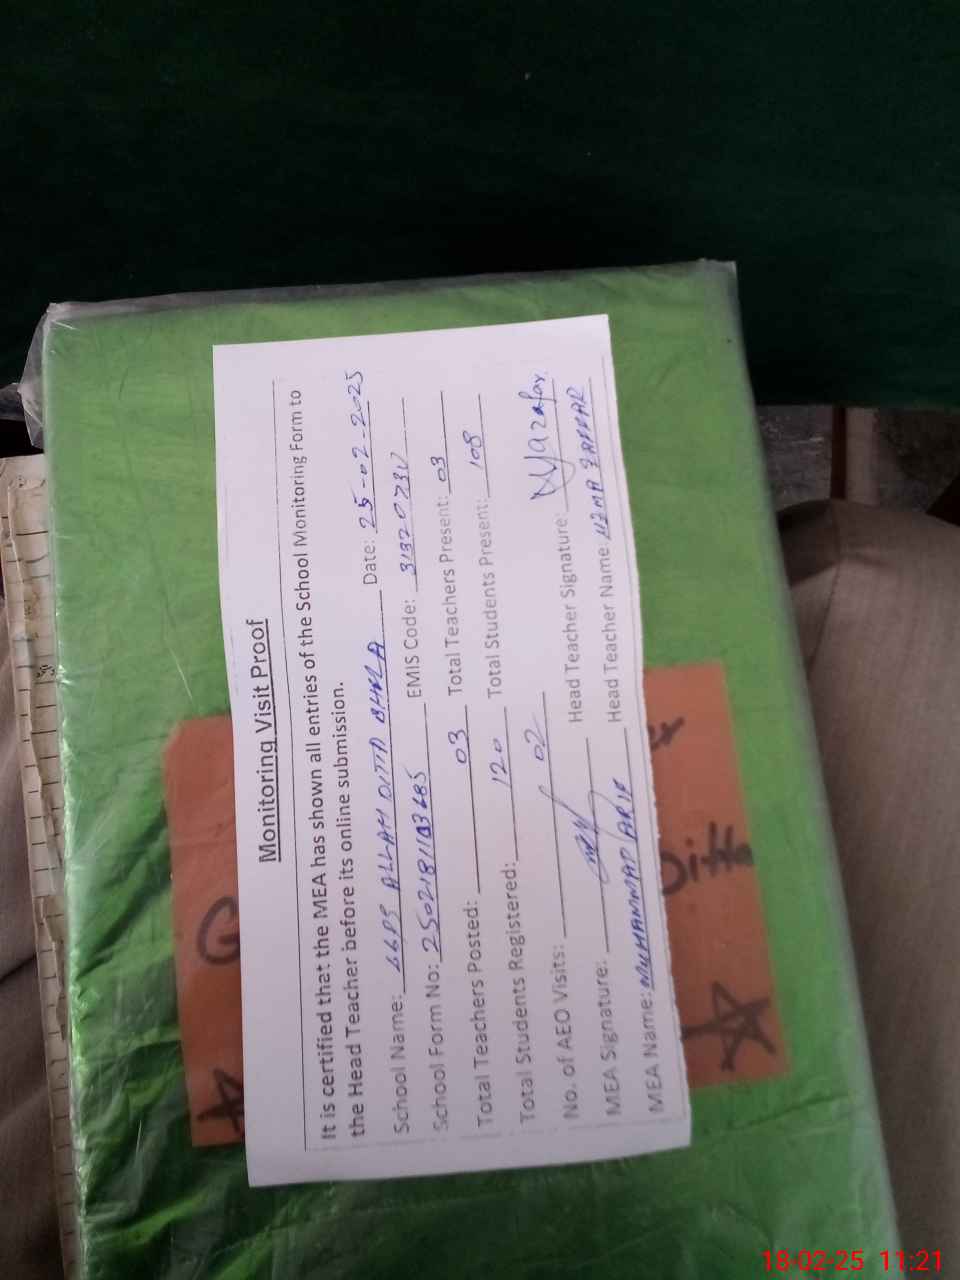 Monitoring Visit Proof
It is certified that the MEA has shown all entries of the School Monitoring Form to
the Head Teacher before its online submission.
School Name: GGPS ALLAH DITTA Date: 25-02-2025
School Form No: EMIS Code: 31320730
Total Teachers Posted: 03 Total Teachers Present: 03
Total Students Registered: 120 Total Students Present: 108
No. of AEO Visits: 02
MEA Signature: Head Teacher Signature:
MEA Name: MUHAMMAD ARIF Head Teacher Name:
G
Ditta
18-02-25 11:21